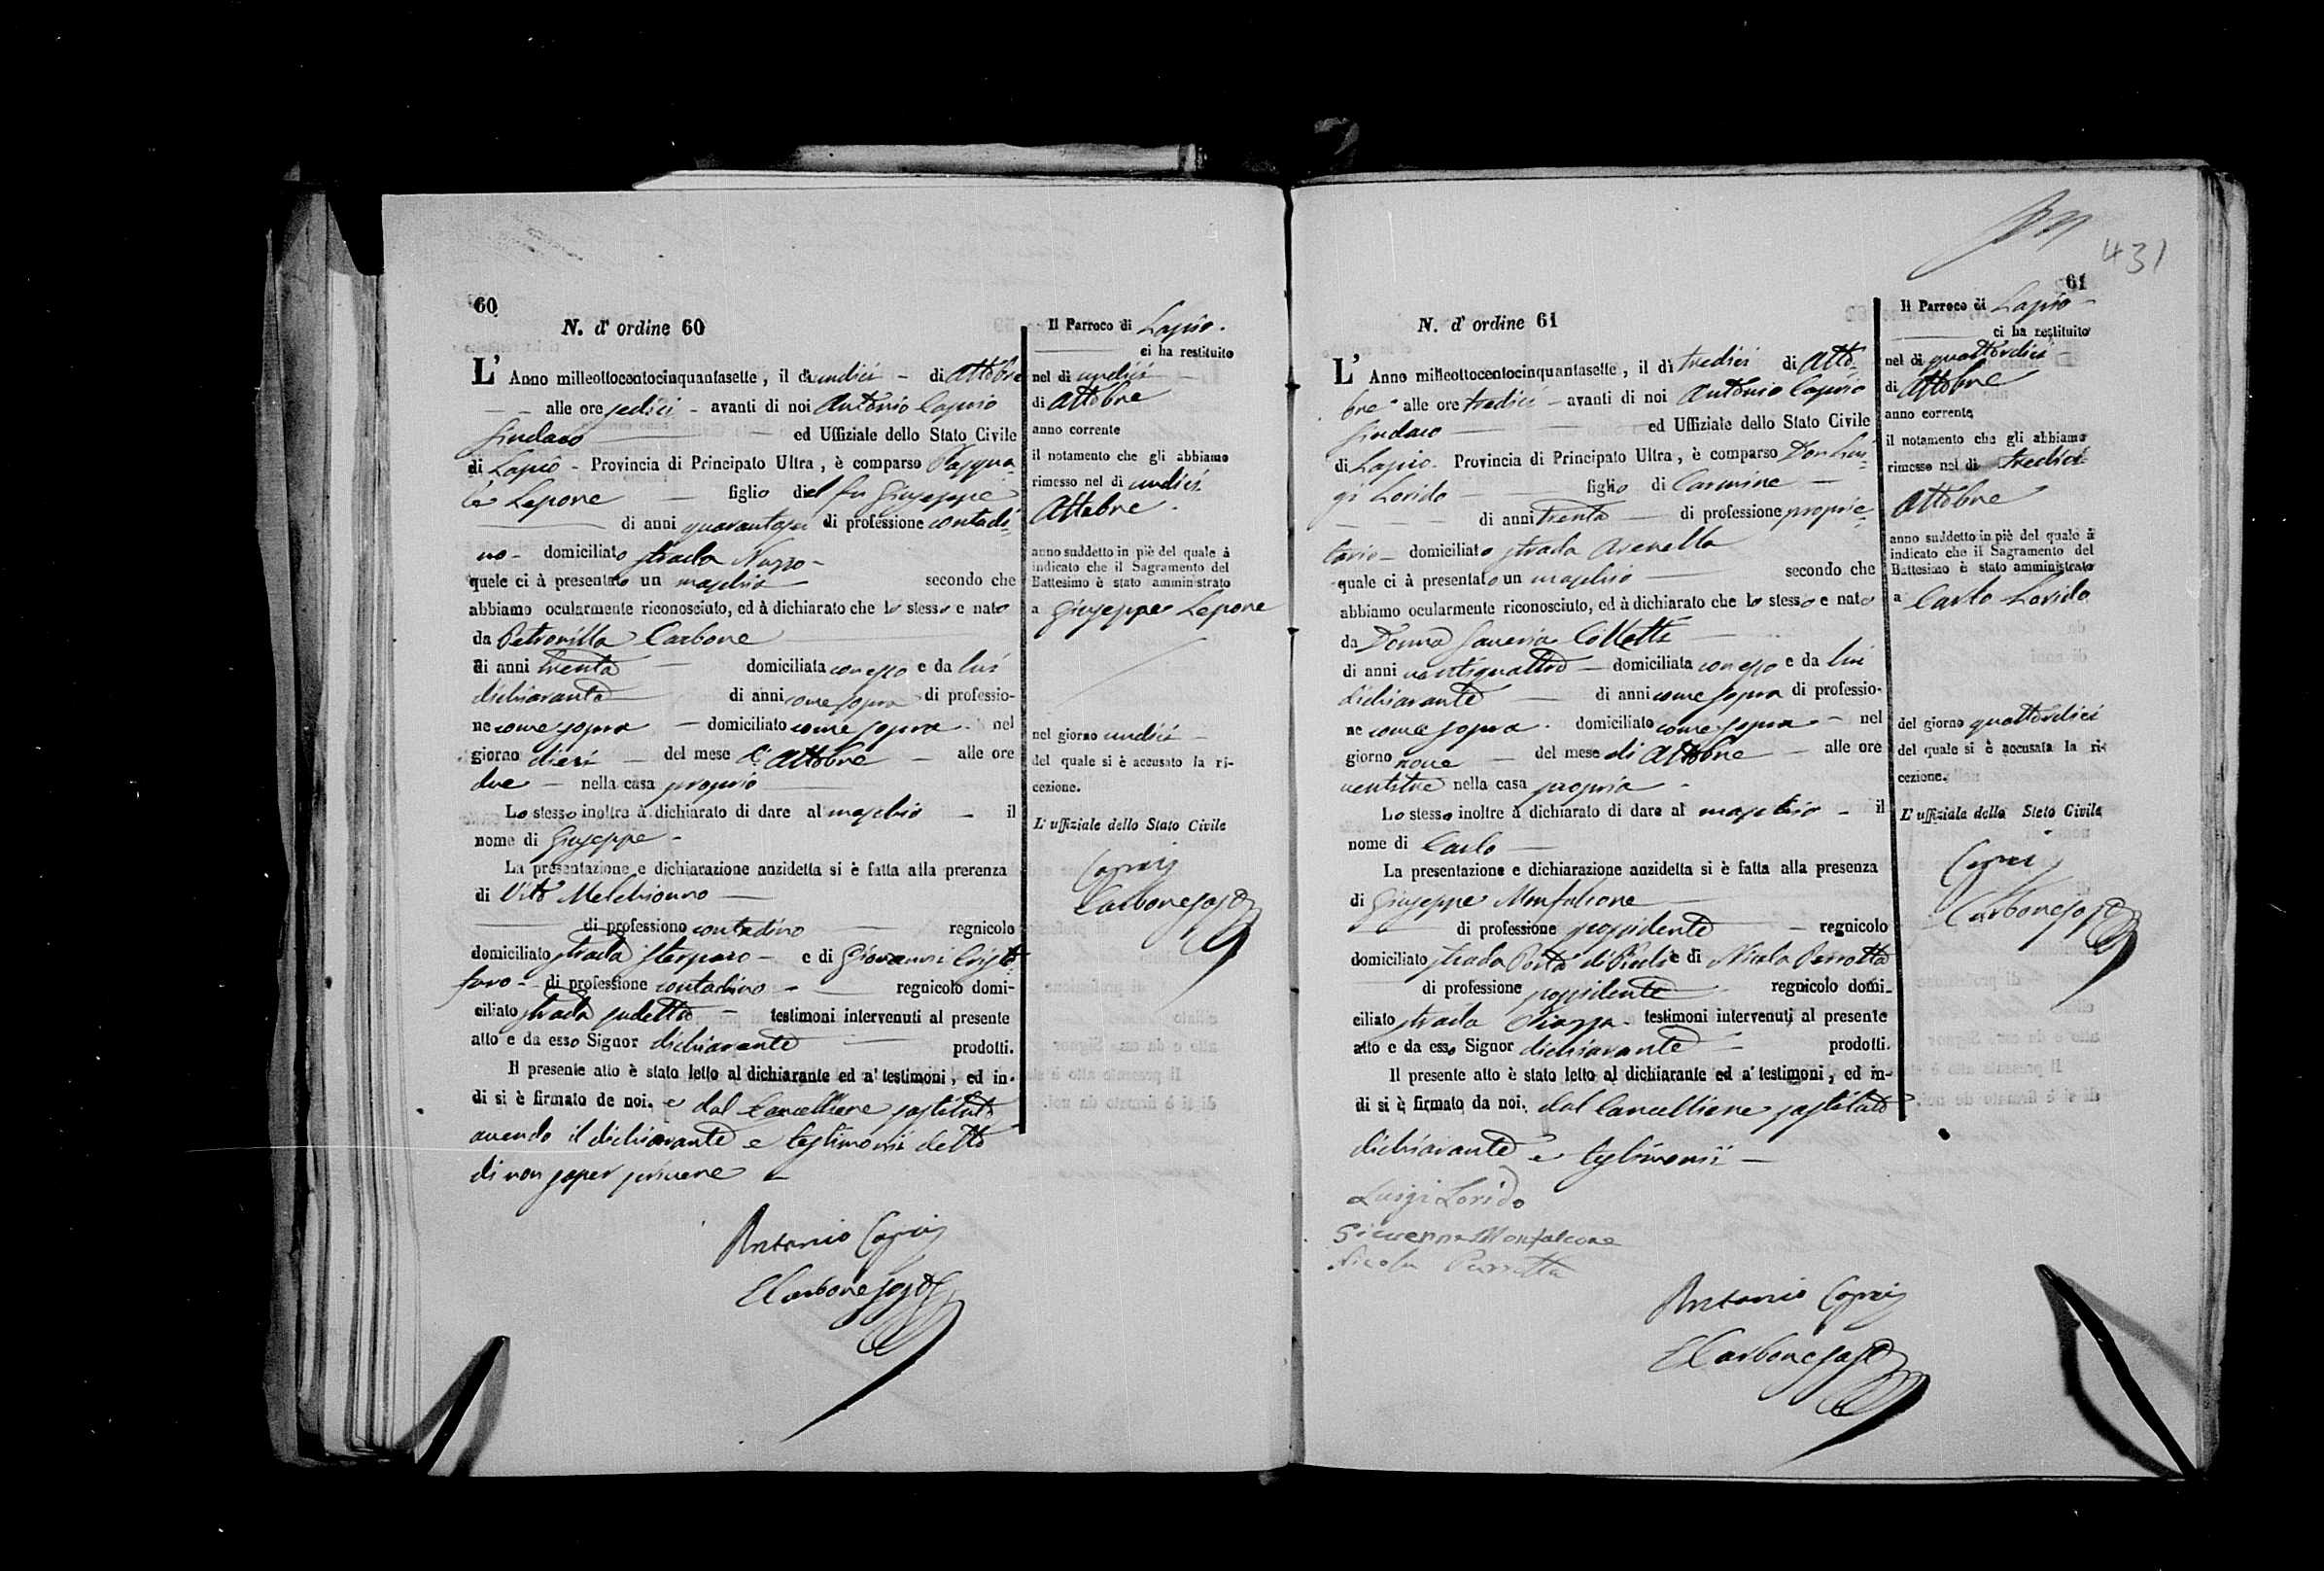 60
N. d' ordine 60
L' Anno milleottocentocinquantasette, il di undici - di Attobre
alle ore sedici - avanti di noi Antonio Caprio
Sindaco ed Uffiziale dello Stato Civile
di Lapio - Provincia di Principato Ultra, è comparso Pasqua
le Lepore figlio del fu Giuseppe
di anni quarantasei di professione contadi-
no - domiciliato strada Nuzzo -
quele ci à presentato un maschio secondo che
abbiamo ocularmente riconosciuto, ed à dichiarato che lo stesso e nato
da Petronilla Carbone
di anni trenta domiciliata con esso e da lui
dichiarante di anni come sopra di professio-
ne come sopra - domiciliato come sopra - nel
giorno dieci del mese di Attobre alle ore
due - nella casa propria
Lo stesso inoltre à dichiarato di dare al maschio - il
nome di Giuseppe -
La presentazione e dichiarazione anzidetta si è fatta alla prerenza
di Vito Melchionno
di professiono contadino regnicolo
domiciliato strada Sterparo - e di Giovanni Cristo
faro - di professione contadino - regnicolo domi-
ciliato strada sudetta - testimoni intervenuti al presente
atto e da esso Signor dichiarante prodotti.
Il presente atto è stato letto al dichiarante ed a' testimoni, ed in-
di si è firmato de noi. e dal Cancelliere sostituto
avendo il dichiarante e testimonii detto
di non saper scrivere
Antonio Caprio
E Carbone sosto
Il Parroco di Lapio.
ci ha restituito
nel di undici
di Attobre
anno corrente
il notamento che gli abbiamo
rimesso nel di undici
Attobre.
anno suddetto in piè del quale à
indicato che il Sagramento del
Battesimo è stato amministrato
a Giuseppe Lepore
nel giorno undici -
del quale si è accusato la ri-
cezione.
L' uffiziale dello Stato Civile
Caprio
Carbone sosto
431
61
N. d' ordine 61
L' Anno milleottocentocinquantasette, il di tredici di Atto-
bre alle ore tredici - avanti di noi Antonio Caprio
Sindaco ed Uffiziale dello Stato Civile
di Lapio. Provincia di Principato Ultra, è comparso Don Lui-
gi Lorido figlio di Carmine -
di anni trenta di professione proprie-
tario - domiciliato strada Avenella
quale ci à presentato un maschio secondo che
abbiamo ocularmente riconosciuto, ed à dichiarato che lo stesso e nato
da Donna Saveria Colletti
di anni ventiquattro - domiciliata con esso e da lui
dichiarante di anni come sopra di professio-
ne come sopra. domiciliato come sopra - nel
giorno nove del mese di Attobre alle ore
ventitre nella casa propria -
Lo stesso inoltre à dichiarato di dare al maschio - il
nome di Carlo
La presentazione e dichiarazione anzidetta si è fatta alla presenza
di Giuseppe Monfalcone
di professione possidente - regnicolo
domiciliato strada Porta di e di Nicola Perrotta
di professione possidente regnicolo domi-
ciliato strada Piazza - testimoni intervenuti al presente
atto e da esso Signor dichiarante prodotti.
Il presente atto è stato letto al dichiarante ed a' testimoni, ed in-
di si è firmato da noi. dal Cancelliere sostituto
dichiarante e testimonii -
Luigi Lorido
Monfalcone
Nicola Perrotta
Antonio Caprio
E Carbone sosto
Il Parroco di Lapio -
ci ha restituito
nel di quattordici -
di Attobre
anno corrente
il notamento che gli abbiamo
rimesso nel di tredici
Attobre
anno suddetto in piè del quale à
indicato che il Sagramento del
Battesimo è stato amministrato
a Carlo Lorido
del giorno quattordici
del quale si è accusata la ri-
cezione.
L' uffiziale dello Stato Civile
Caprio
Carbone sosto